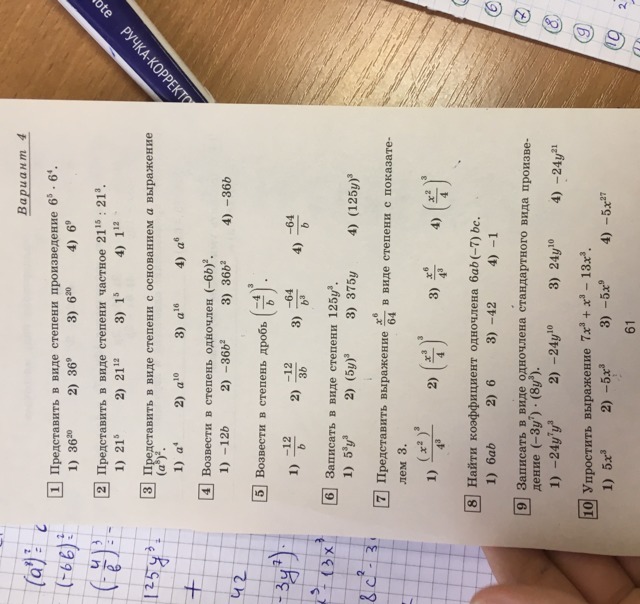 Вариант 4
1 Представить в виде степени произведение 6⁵ · 6⁴.
1) 36²⁰ 2) 36⁹ 3) 6²⁰ 4) 6⁹
2 Представить в виде степени частное 21¹⁵ : 21³.
1) 21⁵ 2) 21¹² 3) 1⁵ 4) 1¹²
3 Представить в виде степени с основанием a выражение
(a⁸)².
1) a⁴ 2) a¹⁰ 3) a¹⁶ 4) a⁶
4 Возвести в степень одночлен (−6b)².
1) −12b 2) −36b² 3) 36b² 4) −36b
5 Возвести в степень дробь (−4/b)³.
1) −12/b 2) −12/3b 3) −64/b³ 4) −64/b
6 Записать в виде степени 125y³.
1) 5³y³ 2) (5y)³ 3) 375y 4) (125y)³
7 Представить выражение x⁶/64 в виде степени с показате-
лем 3.
1) (x²)³/4³ 2) (x³/4)³ 3) x⁶/4³ 4) (x²/4)³
8 Найти коэффициент одночлена 6ab(−7)bc.
1) 6ab 2) 6 3) −42 4) −1
9 Записать в виде одночлена стандартного вида произве-
дение (−3y⁷) · (8y³).
1) −24y⁷y³ 2) −24y¹⁰ 3) 24y¹⁰ 4) −24y²¹
10 Упростить выражение 7x³ + x³ − 13x³.
1) 5x³ 2) −5x³ 3) −5x⁹ 4) −5x²⁷
61
note
РУЧКА-КОРРЕКТО
6
7
8
9
10
(−6b)²
125y³ =
+
42
−3y⁷)